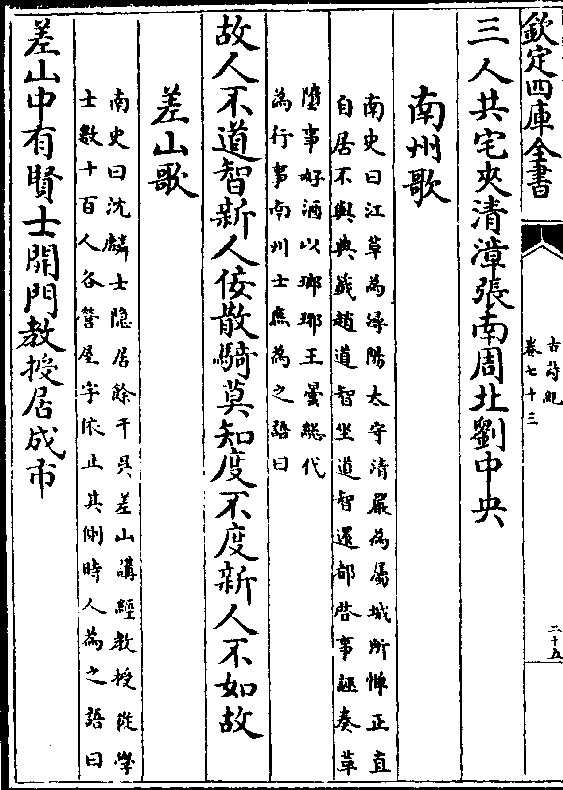 欽定四庫全書
古詩紀
卷七十三
二十五
三人共宅夾清漳張南周北劉中央
南州歌
南史曰江革為潯陽太守清嚴為屬城所憚正直
自居不與典籖趙道智坐道智還都啓事誣奏革
墮事好酒以瑯琊王曇聰代
為行事南州士庶為之語曰
故人不道智新人佞散騎莫知度不度新人不如故
差山歌
南史曰沈麟士隐居餘干吴差山講經教授從學
士數十百人各營屋宇依止其側時人為之語曰
差山中有賢士開門教授居成市